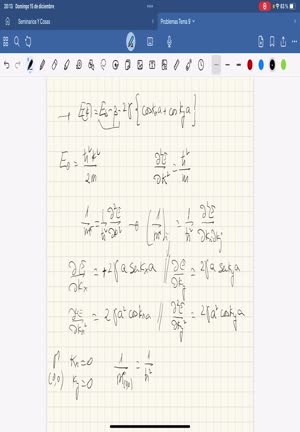 20:13 Domingo 15 de diciembre
61 %
Seminarios Y Cosas
Problemas Tema 9
→ E(k) = E₀ - β - 2γ { cos kₓa + cos k_y a }
E₀ = ħ²k² / 2m    ∂²E/∂k² = ħ²/m
1/m* = 1/ħ² ∂²E/∂k² → (1/m*)ᵢⱼ = 1/ħ² ∂²E/∂kᵢ∂kⱼ
∂E/∂kₓ = +2γ a sen kₓa // ∂E/∂k_y = 2γ a sen k_y a
∂²E/∂kₓ² = 2γa² cos kₓa // ∂²E/∂k_y² = 2γa² cos k_y a
Γ kₓ = 0    1/m*(0,0) = 1/ħ²
(0,0) k_y = 0